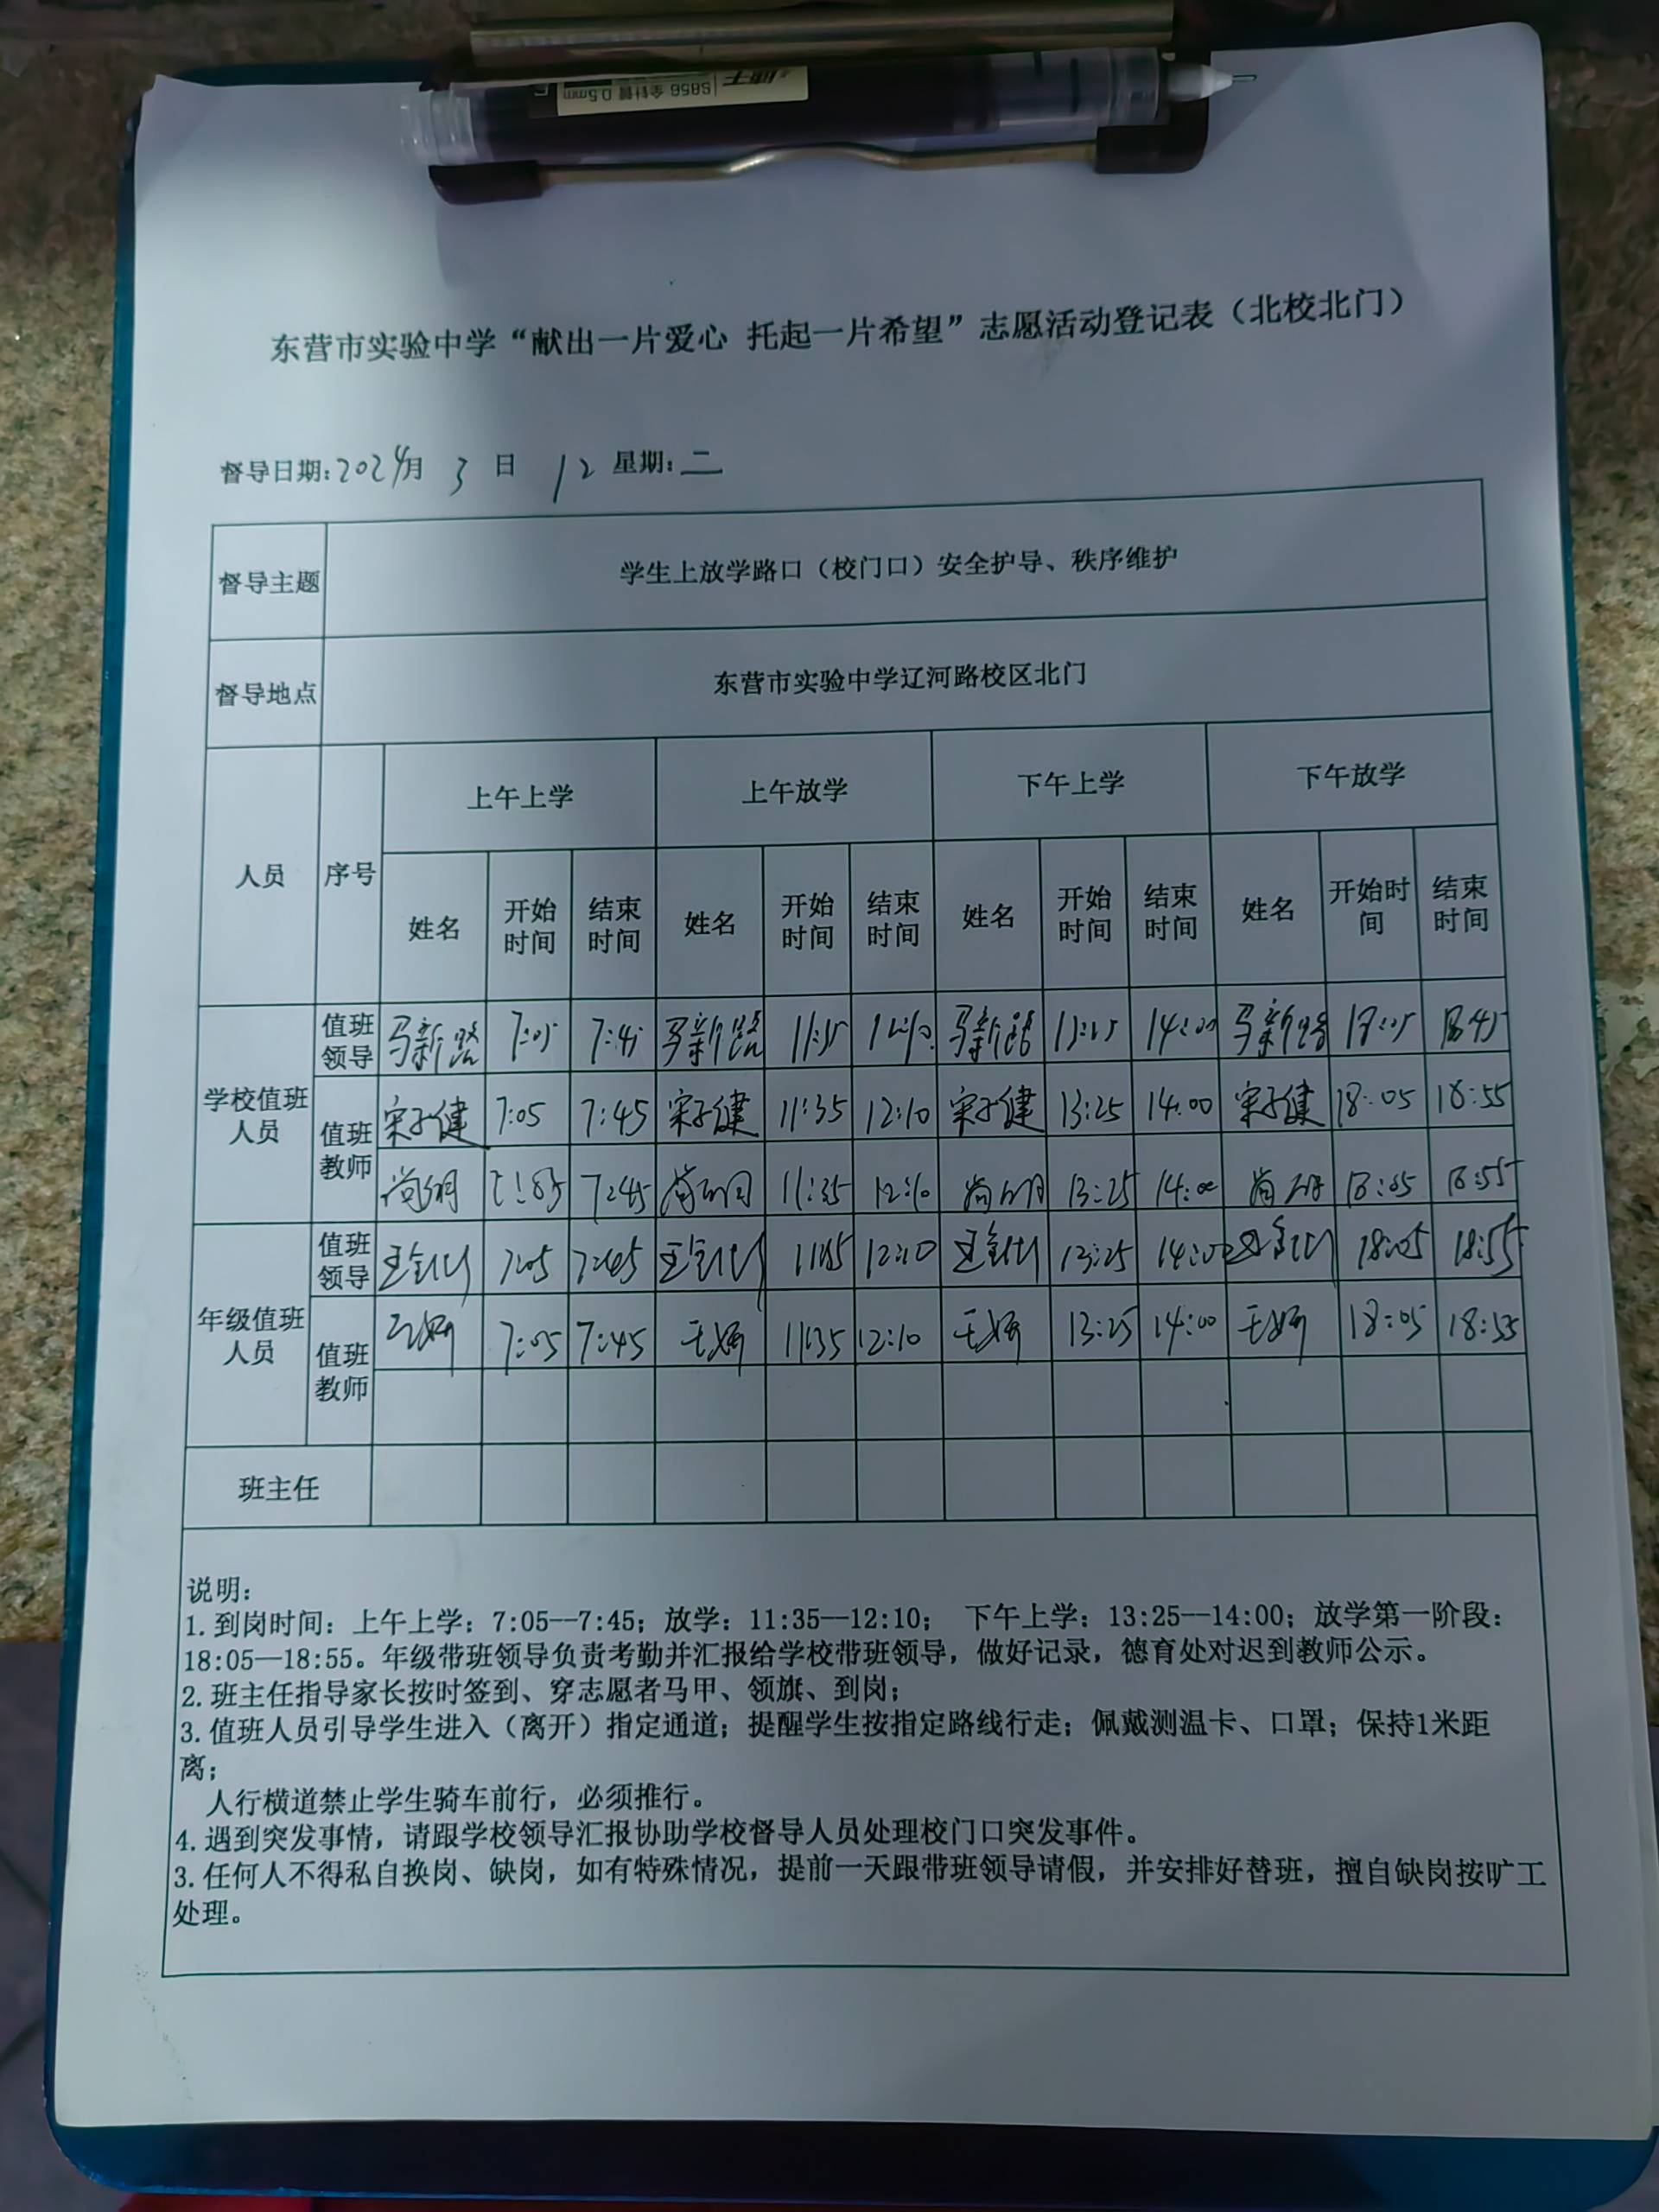 S856 全针管 0.5mm
东营市实验中学“献出一片爱心 托起一片希望”志愿活动登记表（北校北门）
督导日期:2024月 3 日 12 星期:二
督导主题 学生上放学路口（校门口）安全护导、秩序维护
督导地点 东营市实验中学辽河路校区北门
人员 序号 上午上学 上午放学 下午上学 下午放学
姓名 开始时间 结束时间 姓名 开始时间 结束时间 姓名 开始时间 结束时间 姓名 开始时间 结束时间
学校值班人员
值班领导 马新路 7:05 7:45 马新路 11:35 马新路 14:00 马新路 18:05
值班教师 宋子健 7:05 7:45 宋子健 11:35 12:10 宋子健 13:25 14:00 宋子健 18:05 18:55
7:45 11:35 12:10 13:25 14:00 18:05 18:55
年级值班人员
值班领导 7:05 7:45 12:10 13:25 14:00 18:05 18:55
值班教师 王妍 7:05 7:45 王妍 11:35 12:10 王妍 13:25 14:00 王妍 18:05 18:55
班主任
说明:
1.到岗时间：上午上学：7:05--7:45；放学：11:35--12:10； 下午上学：13:25--14:00；放学第一阶段：
18:05—18:55。年级带班领导负责考勤并汇报给学校带班领导，做好记录，德育处对迟到教师公示。
2.班主任指导家长按时签到、穿志愿者马甲、领旗、到岗；
3.值班人员引导学生进入（离开）指定通道；提醒学生按指定路线行走；佩戴测温卡、口罩；保持1米距
离；
人行横道禁止学生骑车前行，必须推行。
4.遇到突发事情，请跟学校领导汇报协助学校督导人员处理校门口突发事件。
3.任何人不得私自换岗、缺岗，如有特殊情况，提前一天跟带班领导请假，并安排好替班，擅自缺岗按旷工
处理。